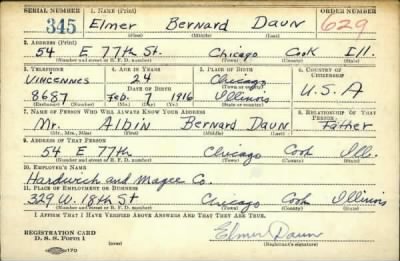 SERIAL NUMBER 1. NAME (Print) ORDER NUMBER
345 Elmer Bernard Daun 629
(First) (Middle) (Last)
2. ADDRESS (Print)
54 E 77th St. Chicago Cook Ill.
(Number and street or R. F. D. number) (Town) (County) (State)
3. TELEPHONE 4. AGE IN YEARS 5. PLACE OF BIRTH 6. COUNTRY OF CITIZENSHIP
Vincennes 24 Chicago
DATE OF BIRTH (Town or county) U.S.A
8687 Feb. 7 1916 Illinois
(Exchange) (Number) (Mo.) (Day) (Yr.) (State or country)
7. NAME OF PERSON WHO WILL ALWAYS KNOW YOUR ADDRESS 8. RELATIONSHIP OF THAT PERSON
Mr. Albin Bernard Daun Father
(Mr., Mrs., Miss) (First) (Middle) (Last)
9. ADDRESS OF THAT PERSON
54 E 77th Chicago Cook Ill.
(Number and street or R. F. D. number) (Town) (County) (State)
10. EMPLOYER'S NAME
Hardwich and Magee Co.
11. PLACE OF EMPLOYMENT OR BUSINESS
329 W. 18th St Chicago Cook Illinois
(Number and street or R. F. D. number) (Town) (County) (State)
I AFFIRM THAT I HAVE VERIFIED ABOVE ANSWERS AND THAT THEY ARE TRUE.
REGISTRATION CARD
D. S. S. Form 1 Elmer Daun
(Registrant's signature)